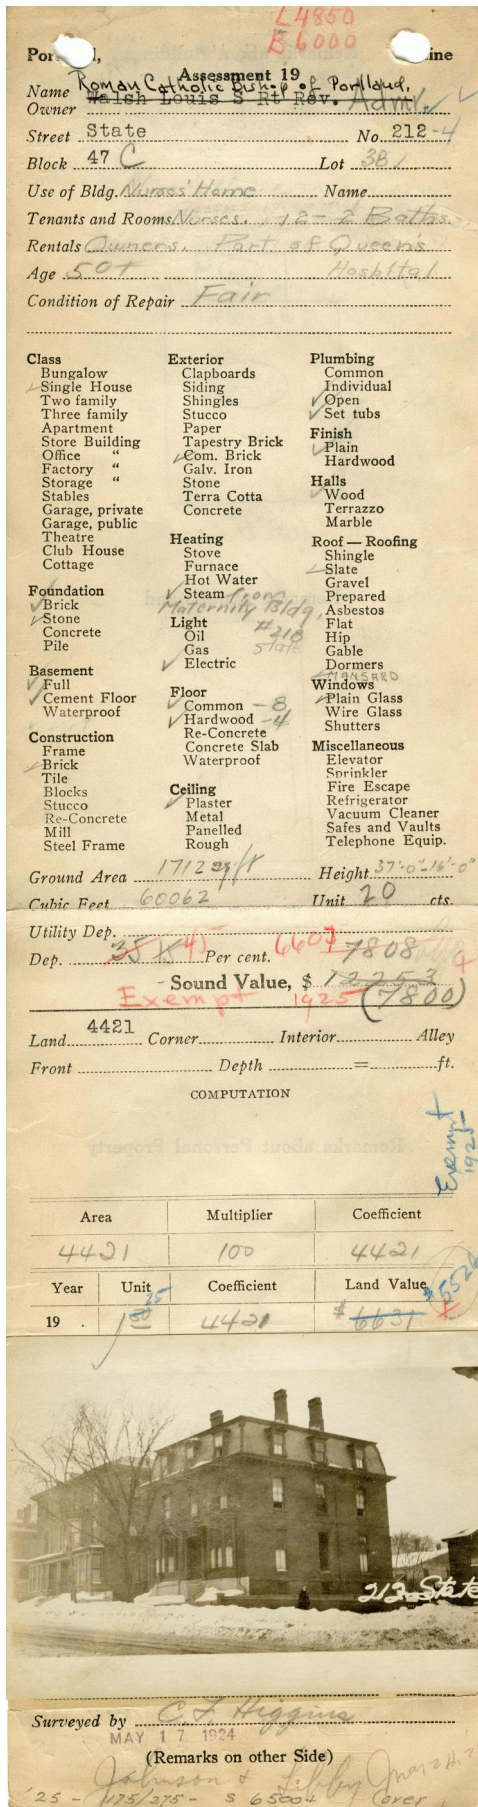 L4850
B6000
Portland, Maine
Assessment 19
Name Roman Catholic Bishop of Portland,
Owner Walsh Louis S Rt Rev. Admr.
Street State No. 212-4
Block 47 C Lot 38
Use of Bldg. Nurses' Home Name
Tenants and Rooms Nurses. 12-2 Baths
Rentals Owners. Part of Queens
Age 50+ Hospital
Condition of Repair Fair
Class
Bungalow
Single House
Two family
Three family
Apartment
Store Building
Office "
Factory "
Storage "
Stables
Garage, private
Garage, public
Theatre
Club House
Cottage
Foundation
Brick
Stone
Concrete
Pile
Basement
Full
Cement Floor
Waterproof
Construction
Frame
Brick
Tile
Blocks
Stucco
Re-Concrete
Mill
Steel Frame
Exterior
Clapboards
Siding
Shingles
Stucco
Paper
Tapestry Brick
Com. Brick
Galv. Iron
Stone
Terra Cotta
Concrete
Heating
Stove
Furnace
Hot Water
Steam from
Maternity Bldg.
#218
State
Light
Oil
Gas
Electric
Floor
Common - 8
Hardwood - 4
Re-Concrete
Concrete Slab
Waterproof
Ceiling
Plaster
Metal
Panelled
Rough
Plumbing
Common
Individual
Open
Set tubs
Finish
Plain
Hardwood
Halls
Wood
Terrazzo
Marble
Roof — Roofing
Shingle
Slate
Gravel
Prepared
Asbestos
Flat
Hip
Gable
Dormers
MANSARD
Windows
Plain Glass
Wire Glass
Shutters
Miscellaneous
Elevator
Sprinkler
Fire Escape
Refrigerator
Vacuum Cleaner
Safes and Vaults
Telephone Equip.
Ground Area 1712 sq/ft Height 37'-0"-16'-0"
Cubic Feet 60062 Unit 20 cts.
Utility Dep.
Dep. 35 45 Per cent. 6607 7808
Sound Value, $ 12253
Exempt 1925 (7800)
Land 4421 Corner Interior Alley
Front Depth = ft.
COMPUTATION
Exempt
1925
Area Multiplier Coefficient
4421 100 4421
Year Unit Coefficient Land Value
25 $5526
19 1 50 4421 $6631
212-State
Surveyed by C F Higgins
MAY 17 1924
(Remarks on other Side)
Johnson & Libby
'25 - 175/275 - S 6500+ Cover